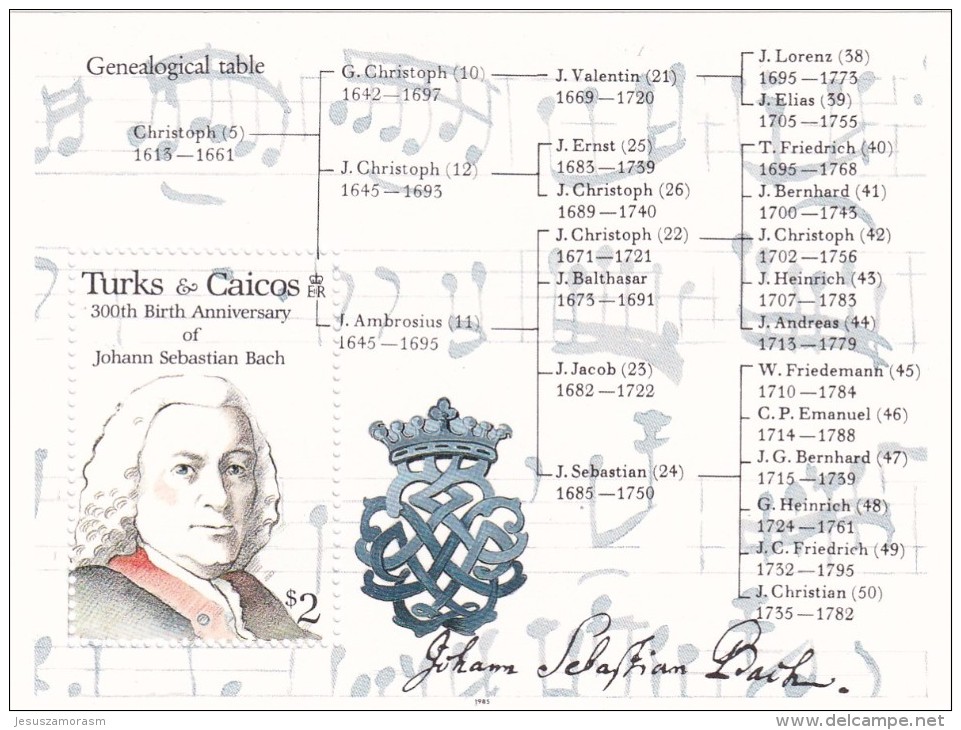 Genealogical table
Christoph (5)
1613—1661
G. Christoph (10)
1642—1697
J. Christoph (12)
1645—1693
J. Ambrosius (11)
1645—1695
J. Valentin (21)
1669—1720
J. Ernst (25)
1683—1739
J. Christoph (26)
1689—1740
J. Christoph (22)
1671—1721
J. Balthasar
1673—1691
J. Jacob (23)
1682—1722
J. Sebastian (24)
1685—1750
J. Lorenz (38)
1695—1773
J. Elias (39)
1705—1755
T. Friedrich (40)
1695—1768
J. Bernhard (41)
1700—1743
J. Christoph (42)
1702—1756
J. Heinrich (43)
1707—1783
J. Andreas (44)
1713—1779
W. Friedemann (45)
1710—1784
C. P. Emanuel (46)
1714—1788
J. G. Bernhard (47)
1715—1739
G. Heinrich (48)
1724—1761
J. C. Friedrich (49)
1732—1795
J. Christian (50)
1735—1782
Turks & Caicos
EIIR
300th Birth Anniversary
of
Johann Sebastian Bach
$2
Johann Sebastian Bach.
1985
jesuszamorasm
delcampe.net